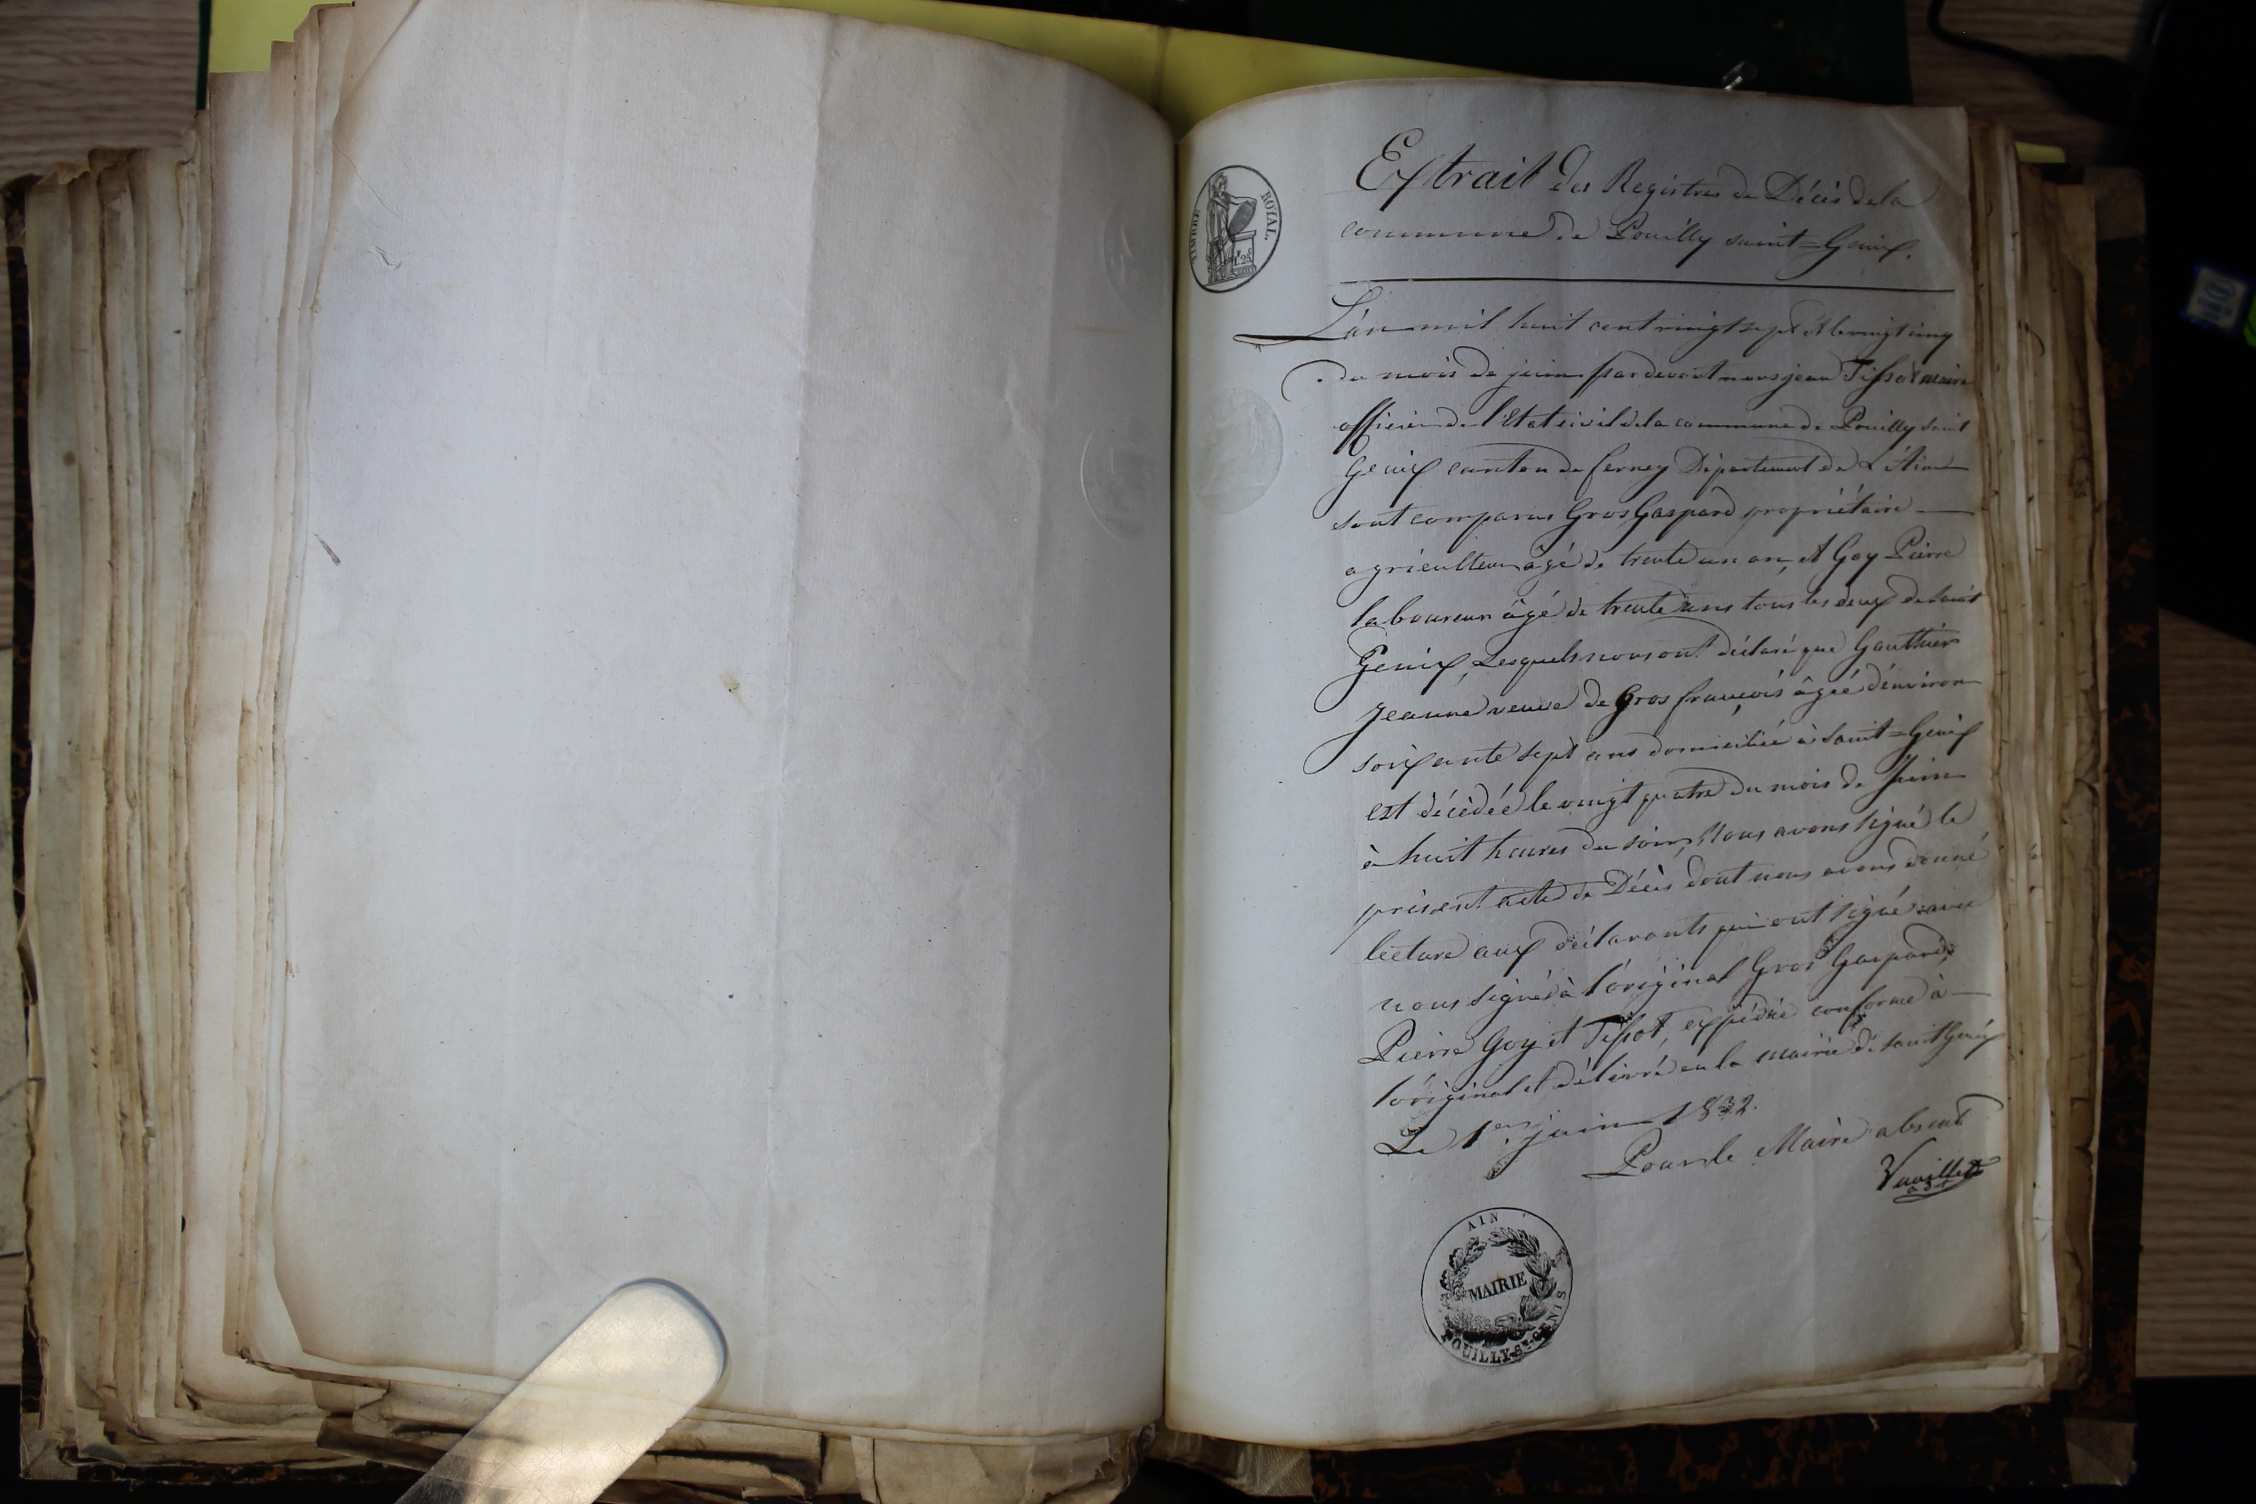 TIMBRE ROYAL.
1f 25c
Extrait des Registres de Décès de la
commune de Pouilly saint=Genix.
L'an mil huit cent vingt sept et le vingt cinq
du mois de juin pardevant nous jean Tissot maire
officier de l'Etat civil de la commune de Pouilly saint
Genix canton de ferney Département de L'Ain
sont comparus Gros Gaspard propriétaire
agriculteur âgé de trente un an, et Goy Pierre
laboureur âgé de trente ans tous les deux de saint
Genix, Lesquels nous ont déclaré que Gauthier
Jeanne veuve de Gros françois âgée d'environ
soixante sept ans domiciliée à saint=Genix
est décédée le vingt quatre du mois de Juin
à huit heures du soir, Nous avons signé le
présent acte de Décès dont nous avons donné
lecture aux déclarants qui ont signé avec
nous signés à l'original Gros Gaspard,
Pierre Goy et Tissot, expédié conforme à
l'original et délivré en la mairie de saint Genix
Le 1er juin 1832.
Pour le Maire absent
Vuaillet
AIN
MAIRIE
POUILLY-St-GENIS